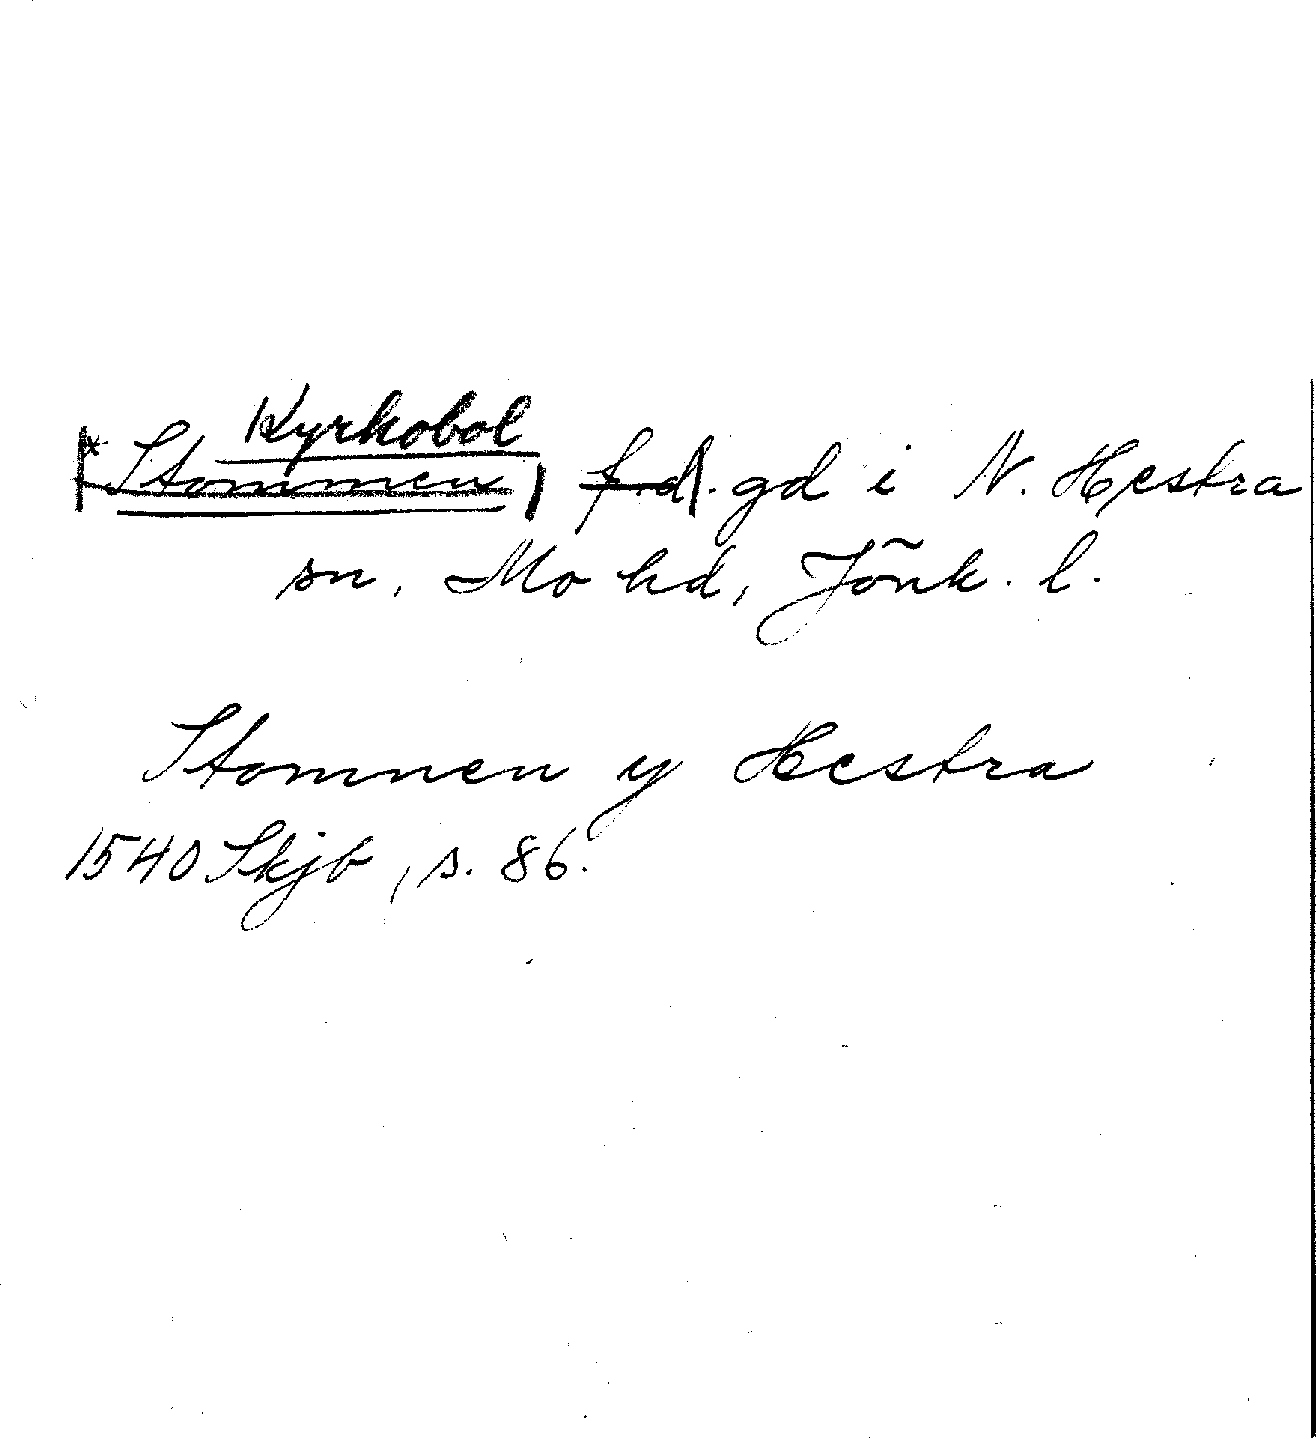 Kyrkobol
*Stommen, f.d. gd i N. Hestra
sn, Mo hd, Jönk. l.
Stomnen y Hestra
1540 Skjb, s. 86.